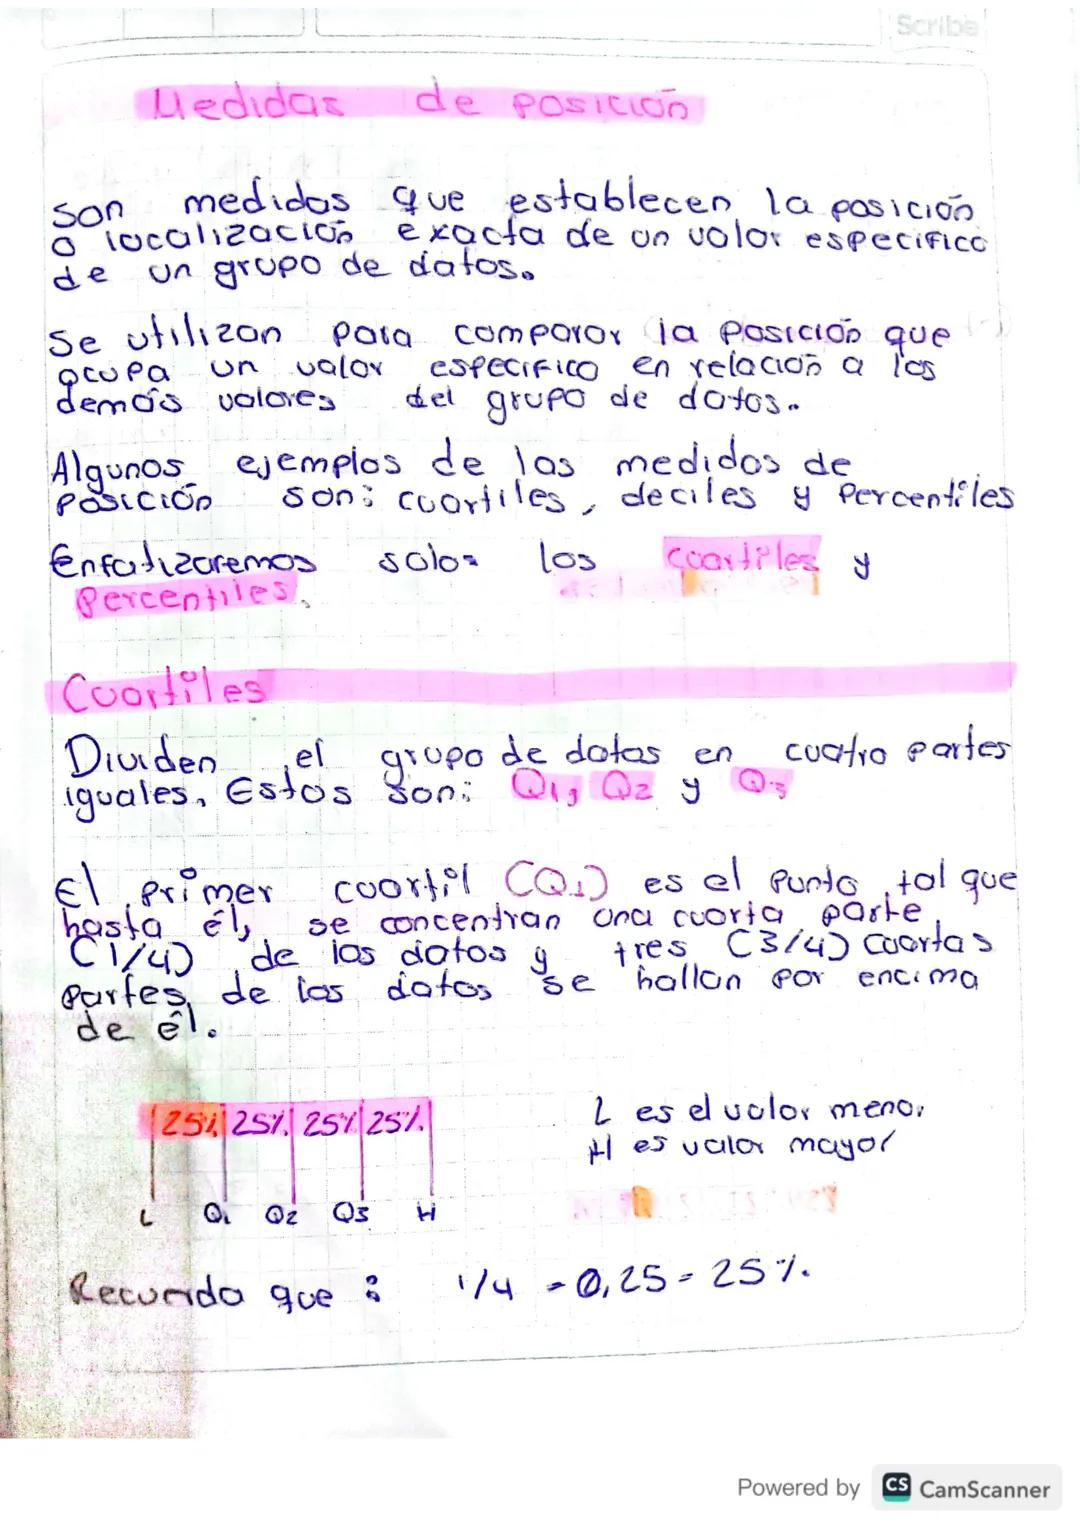 Scribe
Medidas de posición
Son medidas que establecen la posición
o localización exacta de un valor especifico
de un grupo de datos.
Se utilizan para comparar la posición que
ocupa un valor especifico en relación a los
demás valores del grupo de datos.
Algunos ejemplos de las medidas de
posición son: cuartiles, deciles y Percentiles
Enfatizaremos solo los cuartiles y
Percentiles.
Cuartiles
Dividen el grupo de datos en cuatro partes
iguales. Estos son: Q1, Q2 y Q3
El primer cuartil (Q1) es el punto tal que
hasta él, se concentran una cuarta parte
(1/4) de los datos y tres (3/4) cuartas
partes de los datos se hallan por encima
de él.
25% 25% 25% 25%
L Q1 Q2 Q3 H
L es el valor menor
H es valor mayor
Recuerda que : 1/4 = 0,25 = 25%.
Powered by CS CamScanner